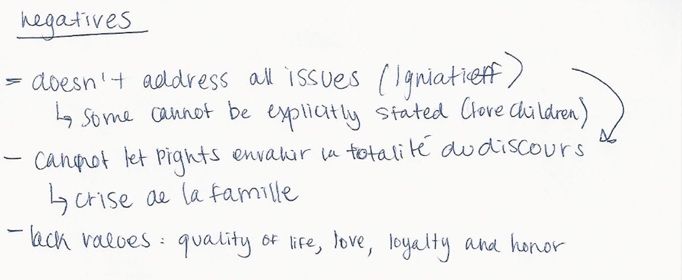 negatives
= doesn't address all issues (Igniatieff)
↳ some cannot be explicitly stated (love children)
- cannot let rights envahir la totalité du discours
↳ crise de la famille
- lack values: quality of life, love, loyalty and honor